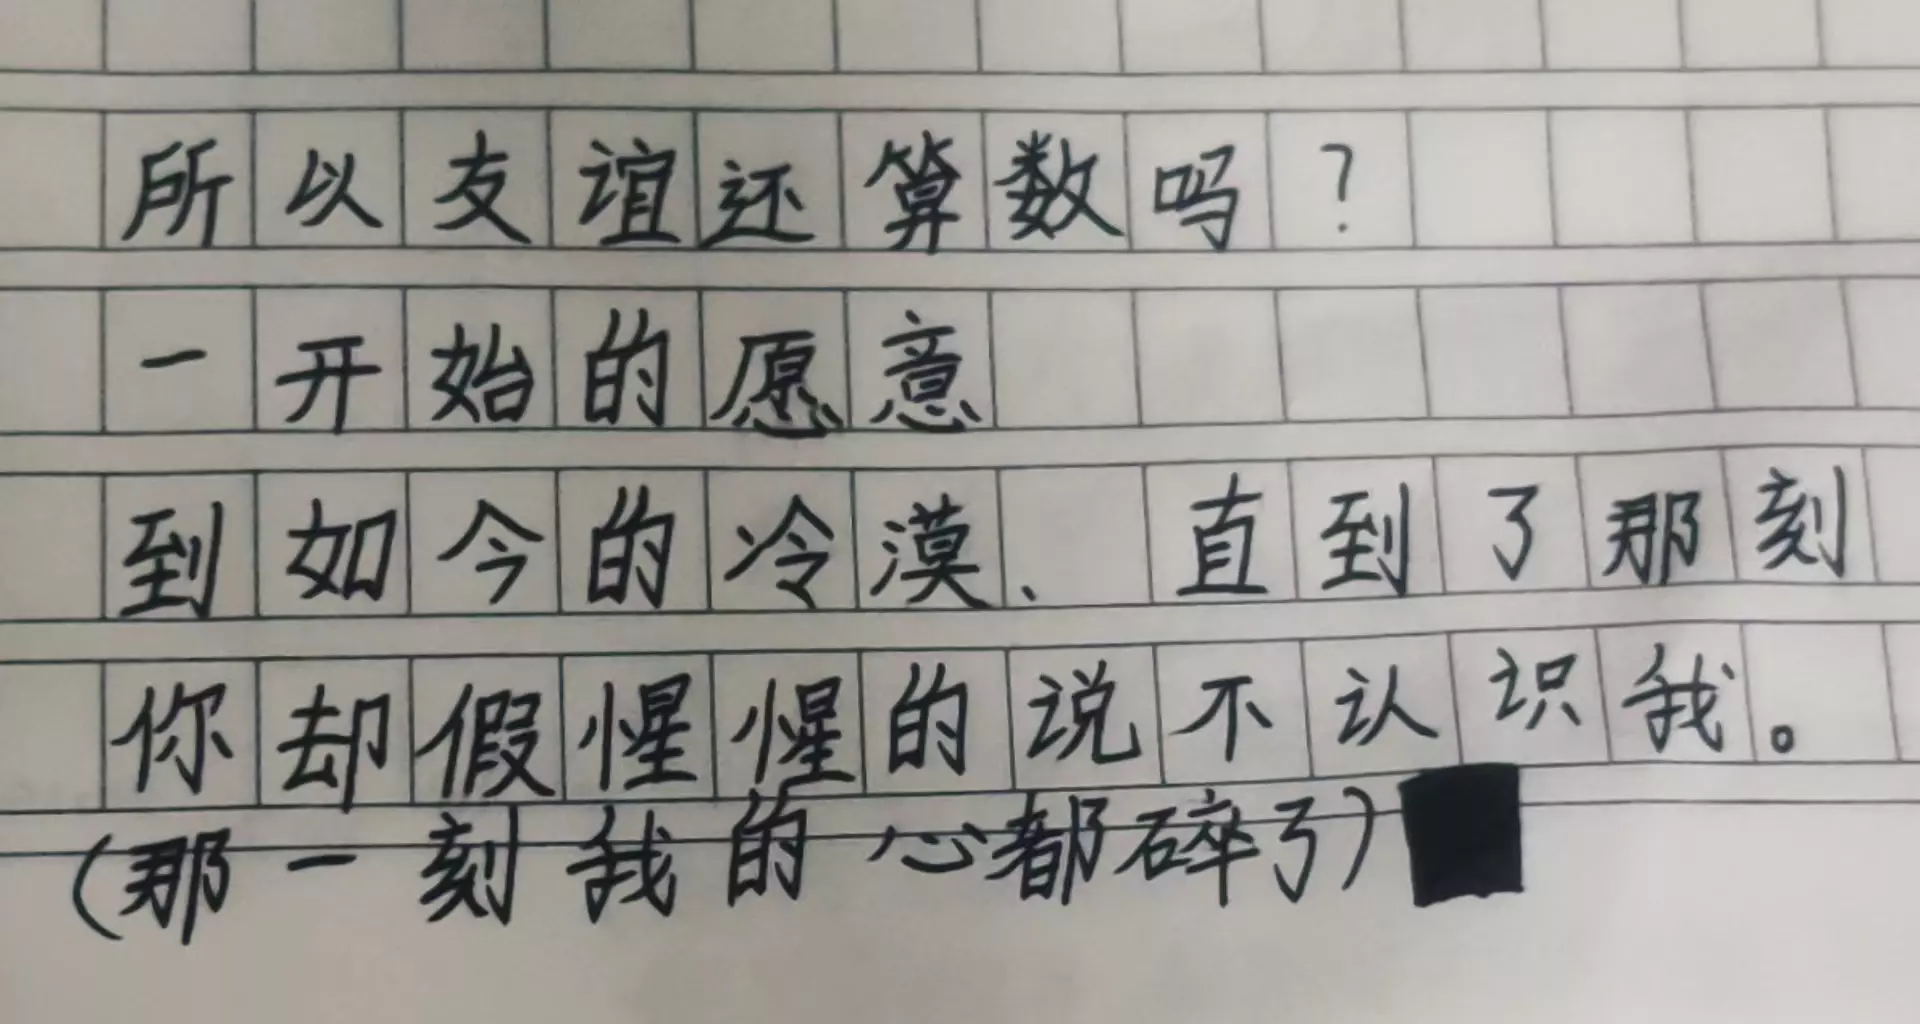 所以友谊还算数吗?
一开始的愿意
到如今的冷漠、直到了那刻
你却假惺惺的说不认识我。
(那一刻我的心都碎了)